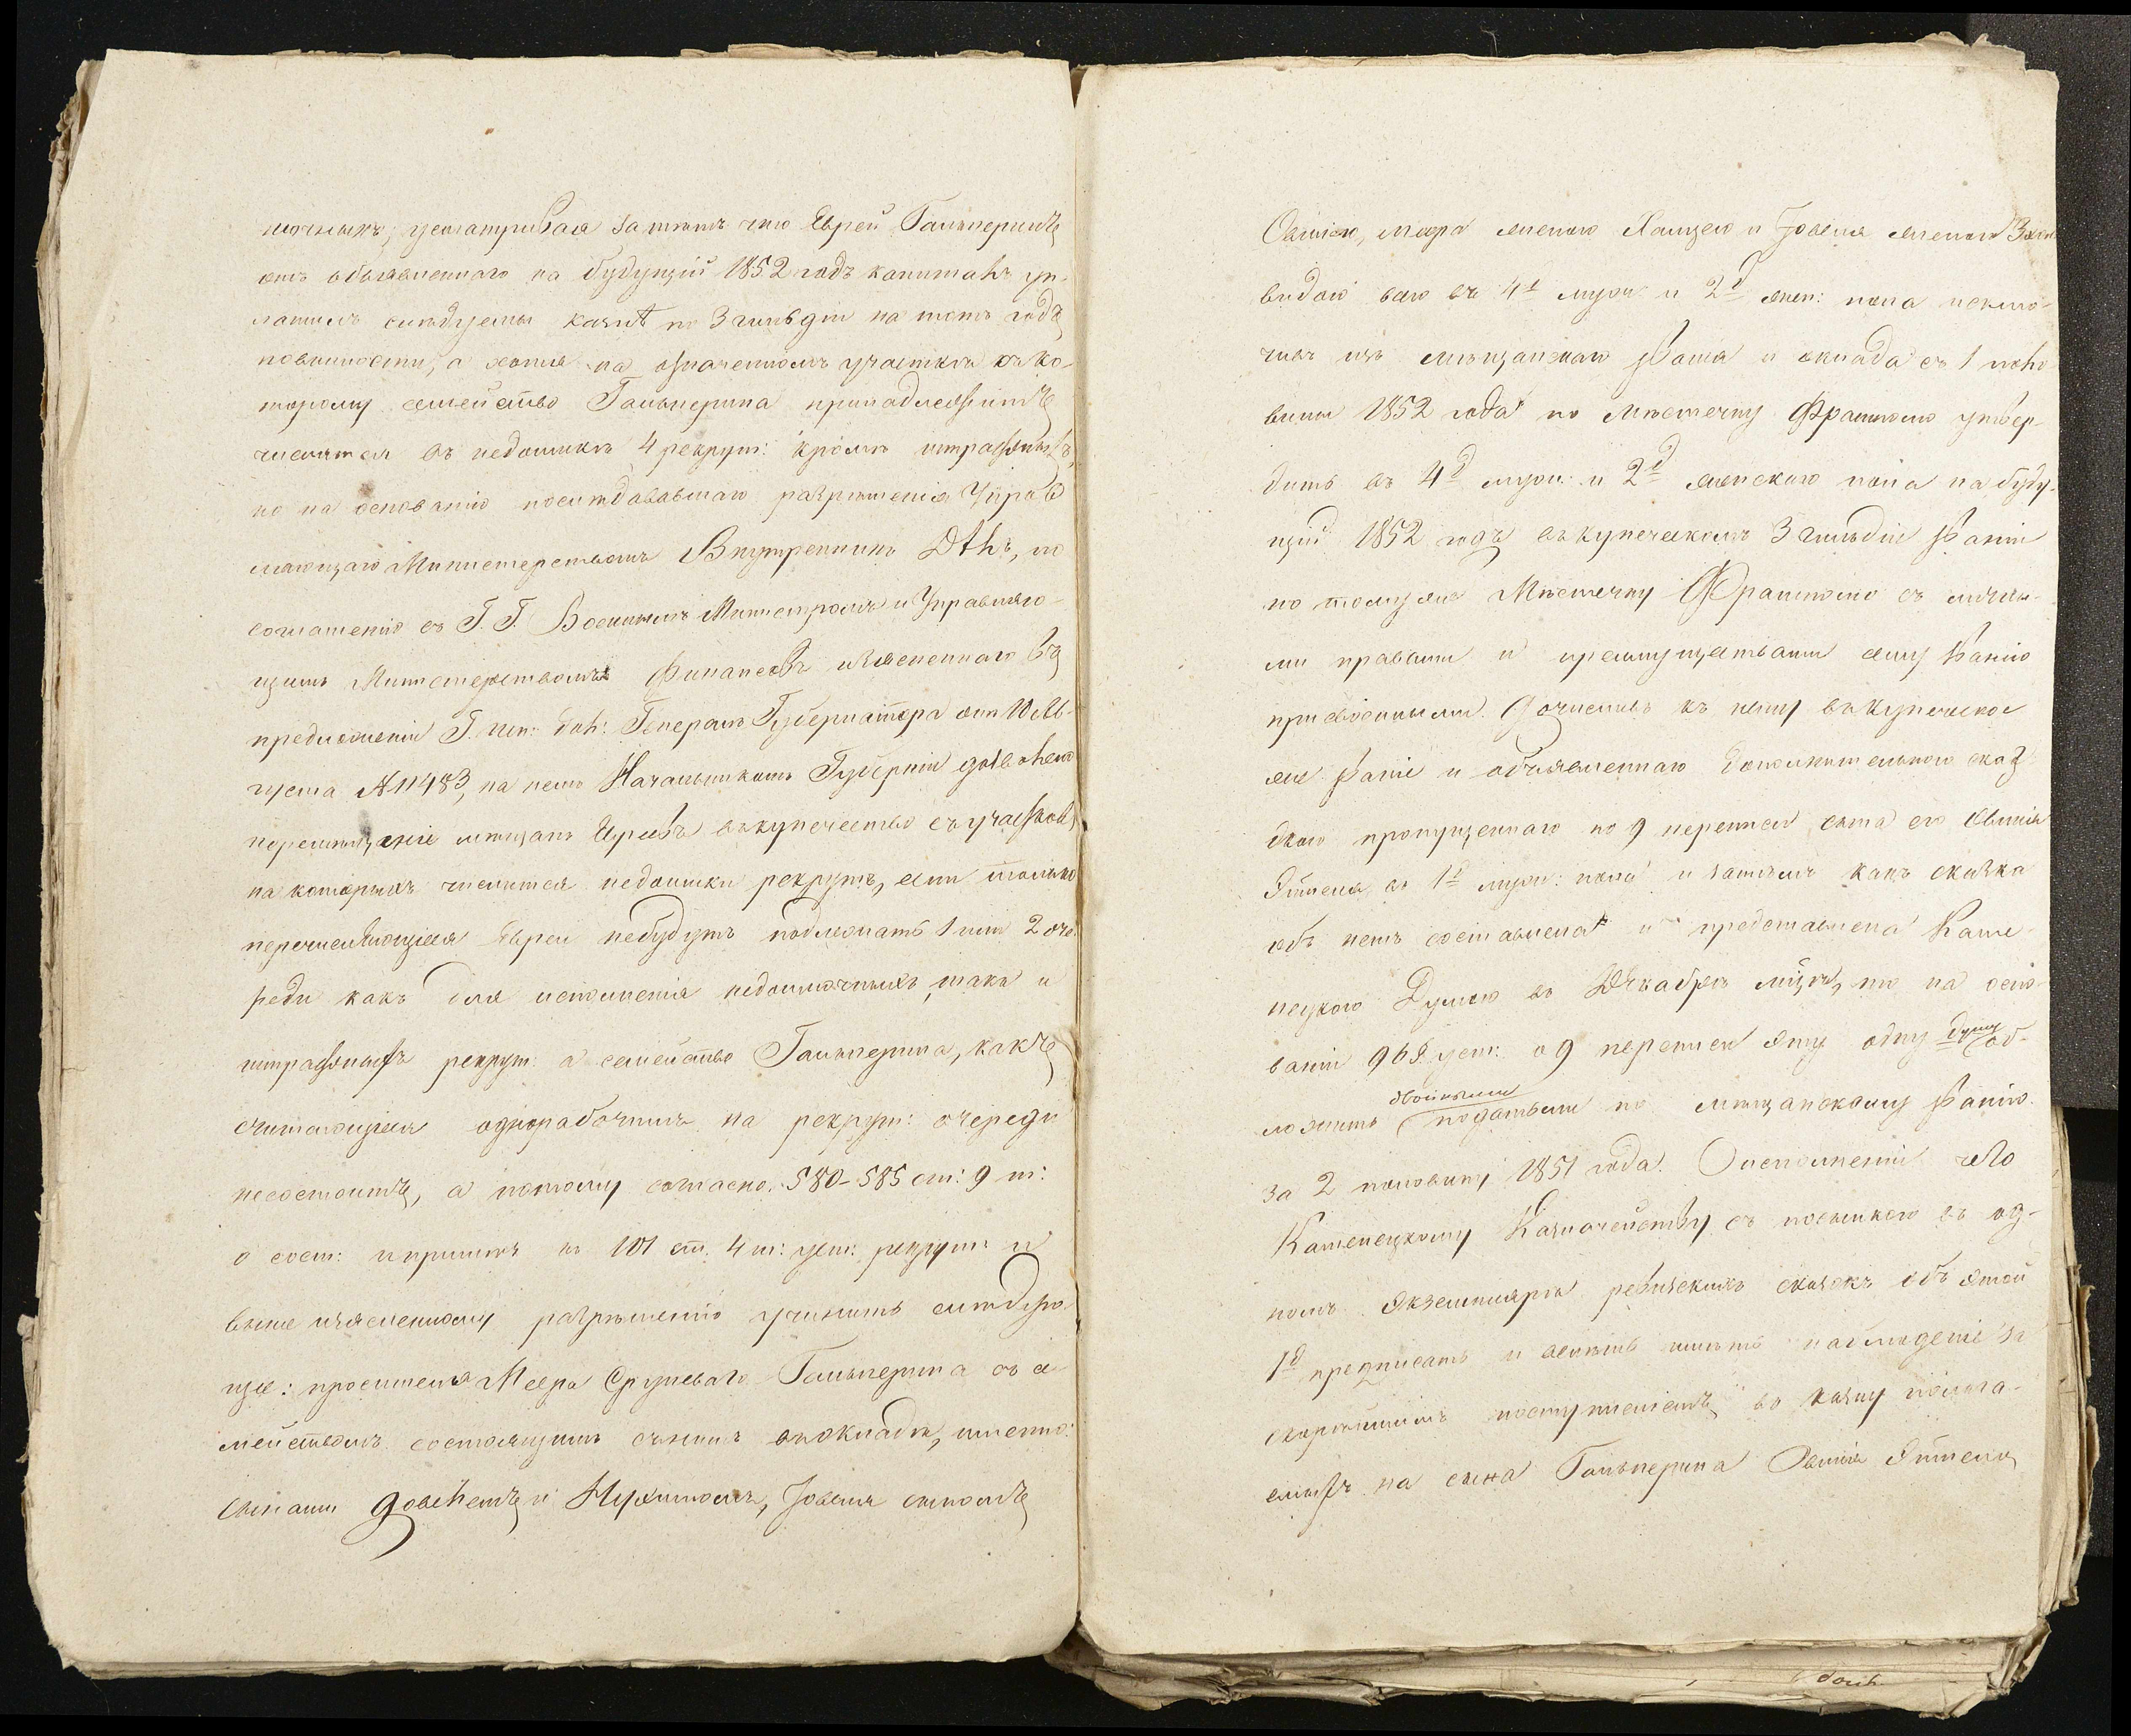 мочныхъ, усматривая затѣмъ что Еврей Гальперинъ
отъ объявленнаго на будущій 1852 годъ капитала уп-
латилъ слѣдуемыя казнѣ по 3 гильдіи на тотъ годъ
повинности, а хотя на означенномъ участкѣ къ ко-
торому семейство Гальперина принадлежитъ
числится въ недоимкѣ 4 рекрут: кромѣ штрафныхъ,
но на основаніи послѣдовавшаго разрѣшенія Управ
ляющаго Министерствомъ Внутреннихъ Дѣлъ, по
соглашенію съ Г. Г. Военнымъ Министромъ и Управляю-
щимъ Министерствомъ Финансовъ изъясненнаго въ
предложеніи Г. Генералъ Губернатора отъ 10 Ав-
густа № 11483, на имя Начальника Губерніи дозволено
перемѣщеніе мѣщанъ Евреевъ въ купечество съ участковъ
на которыхъ числится недоимка рекрутъ, если только
перечисляющіеся Евреи небудутъ подлежать 1 или 2 оче-
реди какъ для исполненія недоимочныхъ, такъ и
штрафныхъ рекрут: а семейство Гальперина, какъ
считающееся однорабочимъ на рекрут: очереди
несостоитъ, а потому согласно 580-585 ст: 9 т:
о сост: и примѣч. къ 101 ст. 4 т: уст: рекрут: и
выше изъясненному разрѣшенію учинить слѣдую
щее: просителя Меера Срулеваго Гальперина съ се
мействомъ состоящимъ съ нимъ въ окладѣ, именно:
сынами и Нухимомъ, сыномъ
Овшіею, Меера женою и женою
видою всего въ 4<sup>д</sup> муж: и 2<sup>д</sup> жен: пола исклю-
чивъ изъ мѣщанскаго званія и оклада съ 1 поло
вины 1852 года по мѣстечку Фрамполю утвер-
дить въ 4<sup>д</sup> муж: и 2<sup>д</sup> женскаго пола на буду-
щій 1852 годъ въ купеческомъ 3 гильдіи званіи
по томуже Мѣстечку Фрамполю съ личны-
ми правами и преимуществами сему званію
присвоенными. Дочисливъ къ нему въ купеческое
же званіе и объявленнаго дополнительною сказ
кою пропущеннаго по 9 переписи сына его Овшія
въ 1<sup>д</sup> муж: пола и затѣмъ какъ сказка
объ немъ составлена и представлена Каме-
нецкою Думою въ Декабрѣ мѣсяцѣ, то на осно-
ваніи 968 уст: о 9 переписи эту одну душу об-
ложить двойными податьми по мѣщанскому званію
за 2 половину 1851 года. О исполненіи чего
Каменецкому Казначейству съ посылкою въ од-
номъ экземплярѣ ревизскихъ сказокъ объ этой
1<sup>д</sup> предписать и велѣть имѣть наблюденіе за
скорѣйшимъ поступленіемъ въ казну полага-
емыхъ на сына Гальперина Овшія